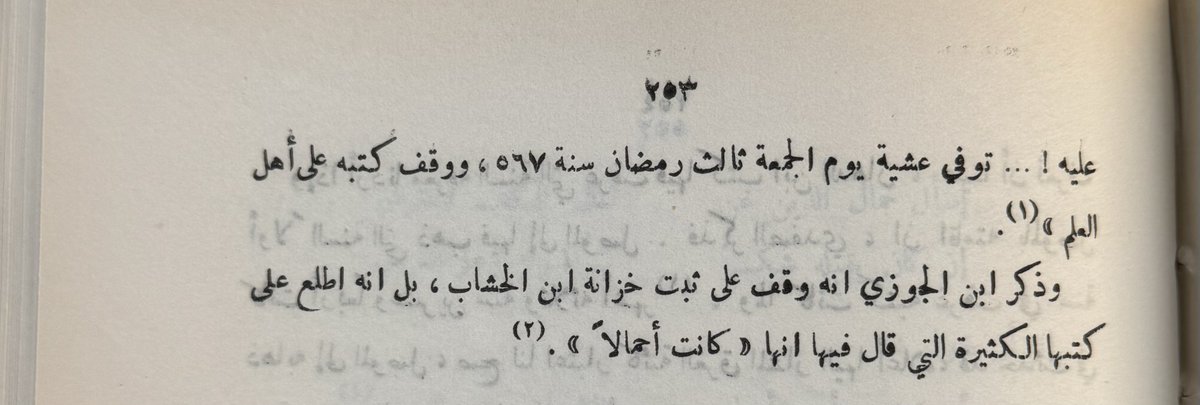 ٢٥٣
عليه ! ... توفي عشية يوم الجمعة ثالث رمضان سنة ٥٦٧ ، ووقف كتبه على أهل
العلم » (١).
وذكر ابن الجوزي انه وقف على ثبت خزانة ابن الخشاب ، بل انه اطلع على
كتبها الكثيرة التي قال فيها انها « كانت أحمالاً » . (٢)